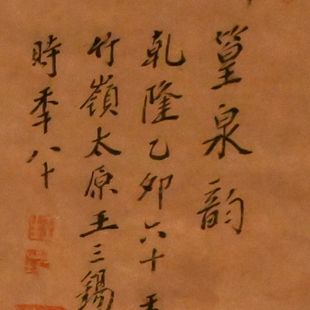 篁泉韵
乾隆乙卯六十
竹嶺太原王三錫
時年八十